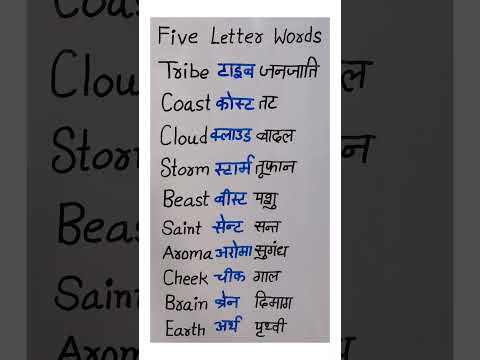 Five Letter Words
Tribe टाइब जनजाति
Coast कोस्ट तट
Cloud क्लाउड बादल
Storm स्टार्म तूफान
Beast बीस्ट पशु
Saint सेन्ट सन्त
Aroma अरोमा सुगंध
Cheek चीक गाल
Brain ब्रेन दिमाग
Earth अर्थ पृथ्वी